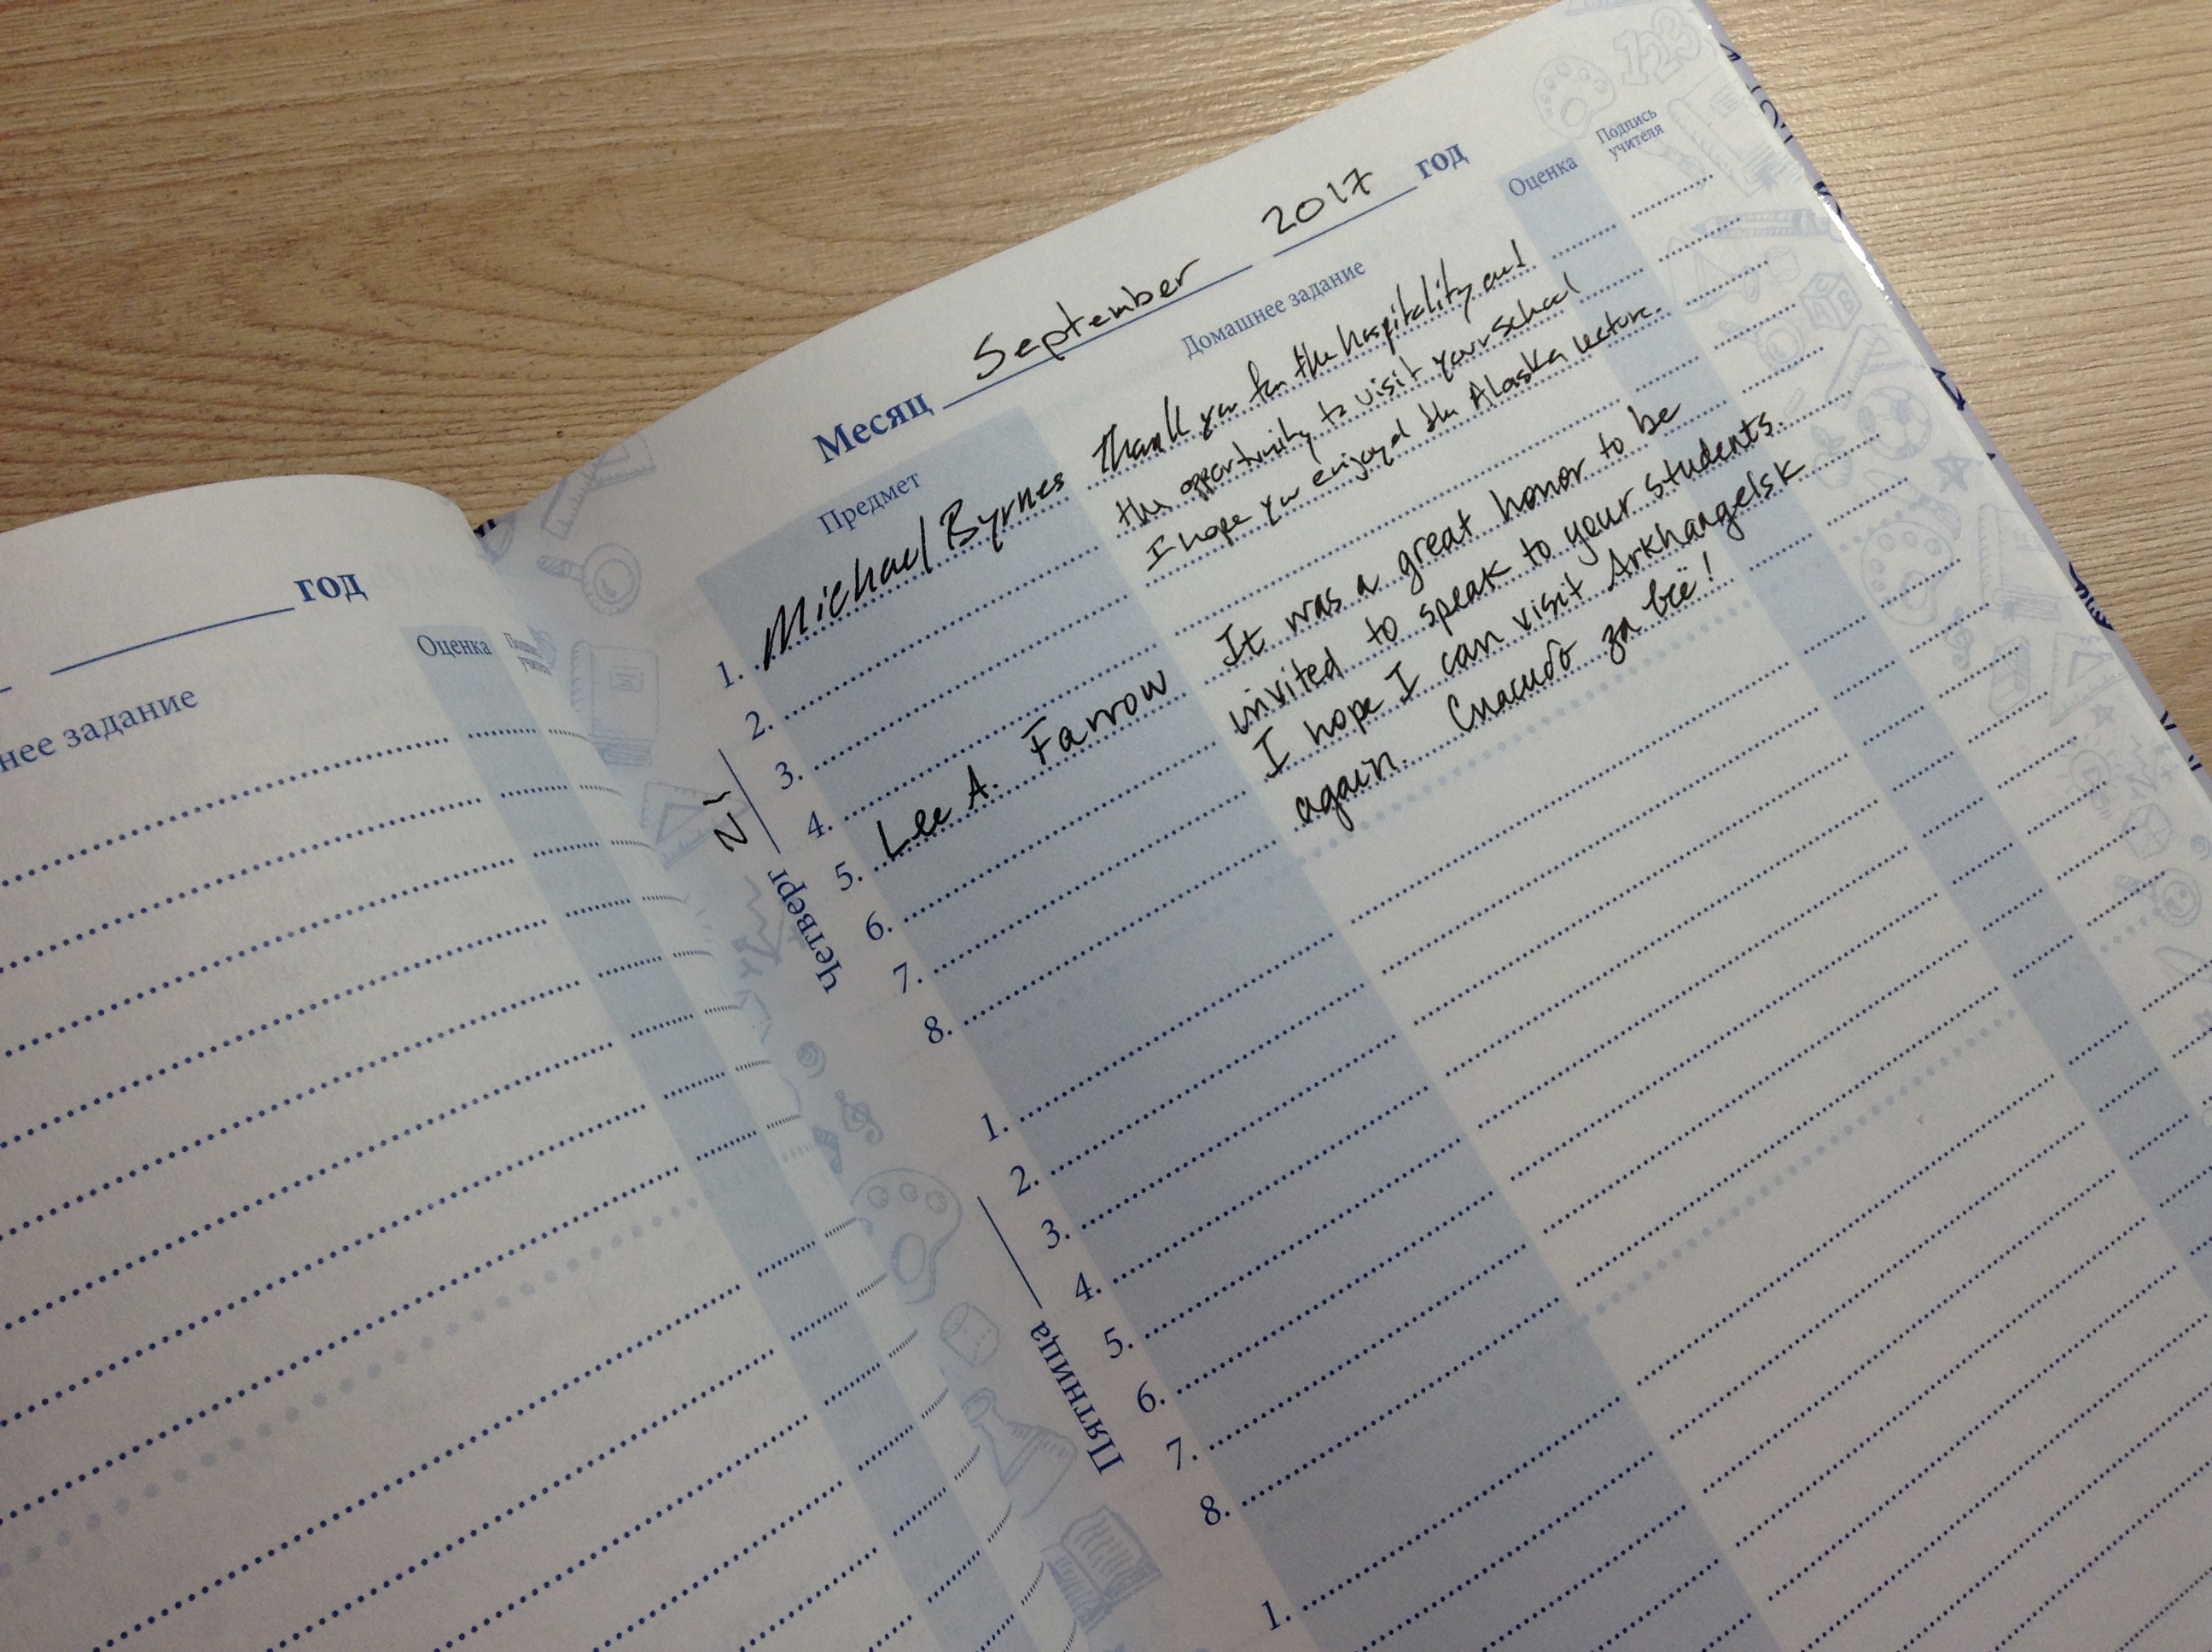 год
Оценка
нее задание
Месяц September 2017 год
Предмет
Домашнее задание
Оценка
Подпись
учителя
21
Четверг
1. Michael Byrnes Thank you for the hospitality and
2. the opportunity to visit your school
3. I hope you enjoyed the Alaska lecture.
4.
5. Lee A. Farrow It was a great honor to be
6. invited to speak to your students.
7. I hope I can visit Arkhangelsk
8. again. Спасибо за всё!
Пятница
1.
2.
3.
4.
5.
6.
7.
8.
1.